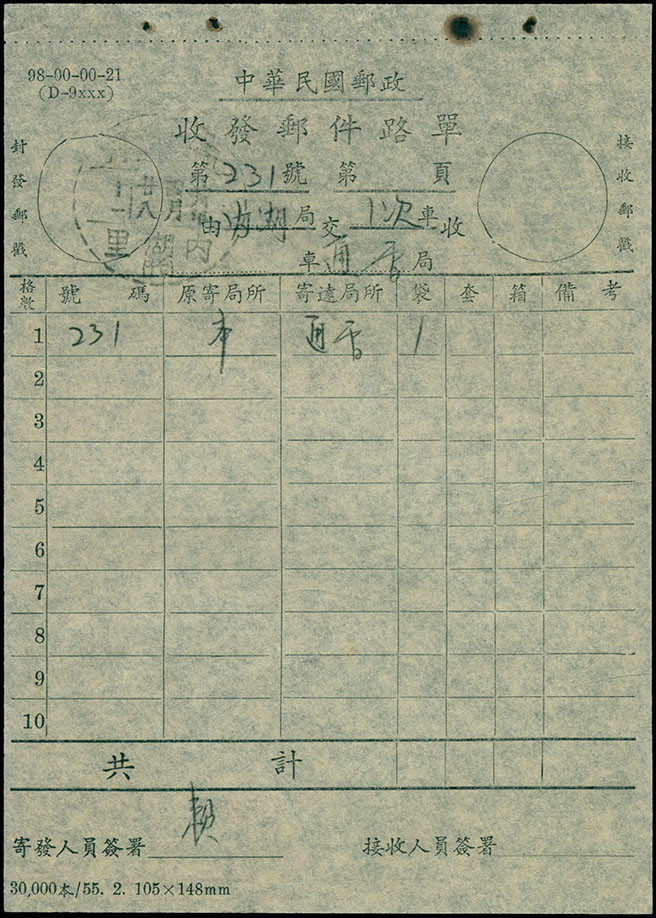 98-00-00-21
(D-9xxx)
中華民國郵政
收發郵件路單
第231號 第 頁
由 湖局交1次車收
車通霄局
封發郵戳
接收郵戳
格數 號碼 原寄局所 寄達局所 袋 套 箱 備考
1 231 本 通霄 1
2
3
4
5
6
7
8
9
10
共計
寄發人員簽署 賴
接收人員簽署
30,000本/55. 2. 105×148mm